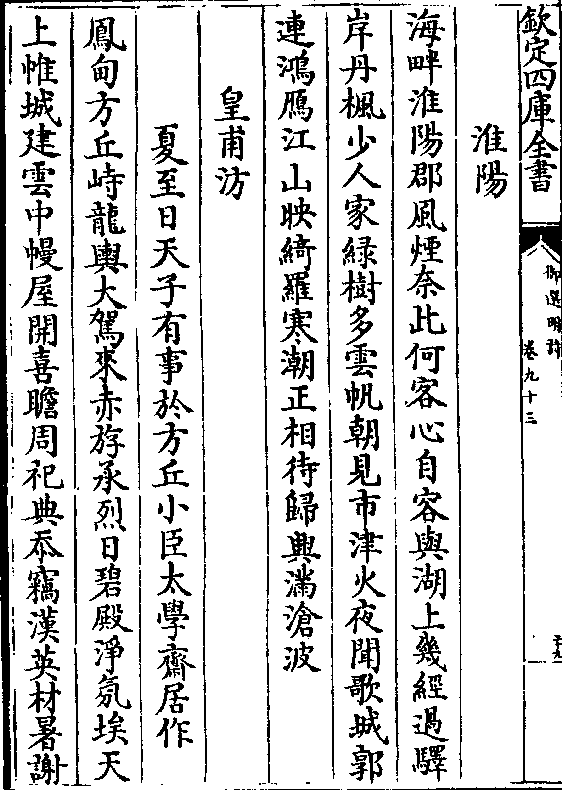 欽定四庫全書
御選明詩
卷九十三
淮陽
海畔淮陽郡風煙奈此何客心自容與湖上幾經過驛
岸丹楓少人家緑樹多雲帆朝見市津火夜聞歌城郭
連鴻鴈江山映綺羅寒潮正相待歸興滿滄波
皇甫汸
夏至日天子有事於方丘小臣太學齋居作
鳳甸方丘峙龍輿大駕來赤斿承烈日碧殿淨氛埃天
上惟城建雲中幔屋開喜瞻周祀典忝竊漢英材暑謝